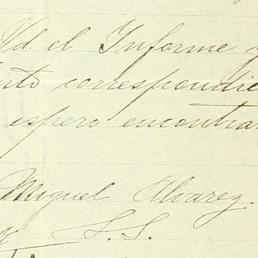 Vd. el Informe
nto correspondie
espero encontrar
Miguel Alvarez.
S. S.